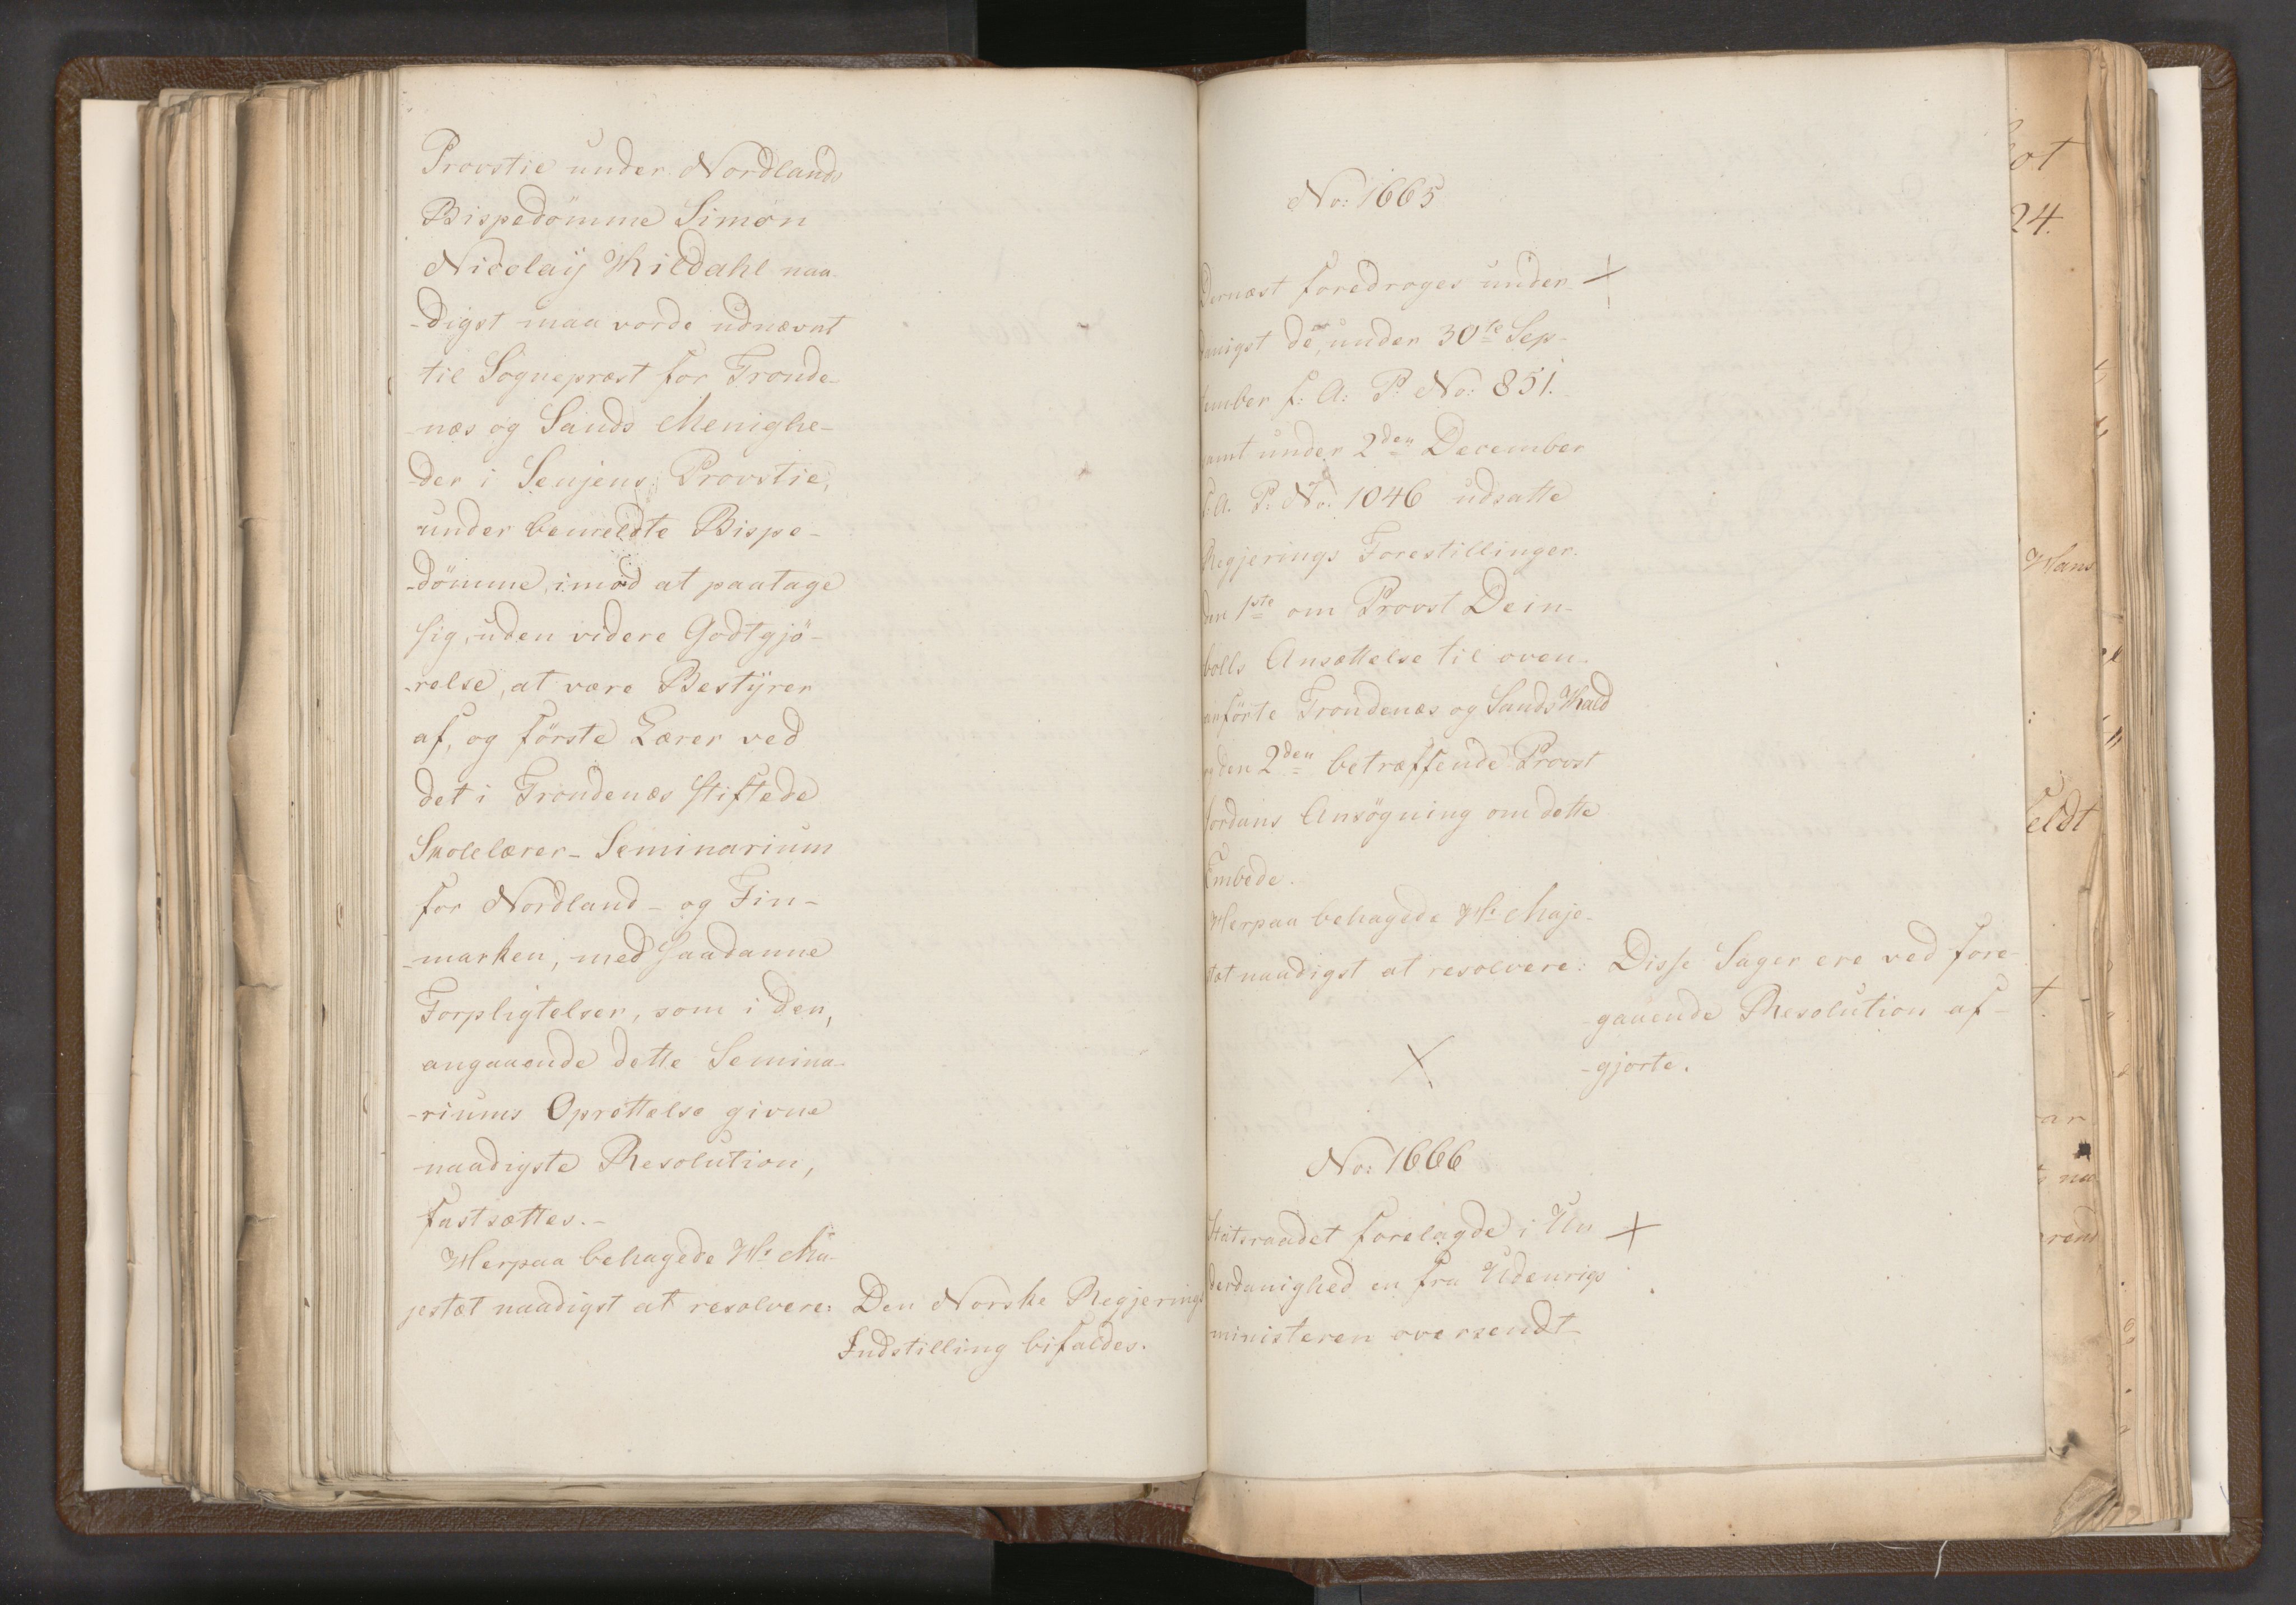 Provstie under Nordlands
Bispedömme Simon
Nicolaÿ Kildahl naa-
-digst maa vorde udnævnt
til Sognepræst for Tronde-
-næs og Sands Menighe-
-der i Senjens Provstie,
under bemeldte Bispe-
-dömme, imod at paatage
sig, uden videre Godtgjö-
-relse, at være Bestÿrer
af, og förste Lærer ved
det i Trondenæs stiftede
Skolelærer-Seminarium
for Nordland- og Fin-
-marken, med saadanne
Forpligtelser, som i den,
angaaende dette Semina-
-riums Oprettelse givne
naadigste Resolution,
fastsættes.-
Herpaa behagede Hs Ma-
jestæt naadigst at resolvere:
Den Norske Regjerings
Indstilling bifaldes.
No: 1665
Dernæst foredroges under-
danigst de, under 30te Sep-
tember f: A: P. No: 851.
samt under 2den December
f: A. P: No: 1046 udsatte
Regjerings Forestillinger.
den 1ste om Provst Dein-
bolls Ansættelse til oven-
anförte Trondenæs og Sands Kald
og den 2den betræffende Provst
Jordans Ansögning om dette
Embede.
Herpaa behagede Hs Maje-
stæt naadigst at resolvere:
Disse Sager ere ved fore-
-gaaende Resolution af-
-gjorte.
No: 1666
Statsraadet forelagde i Un
derdanighed en fra Udenrigs
ministeren oversendt